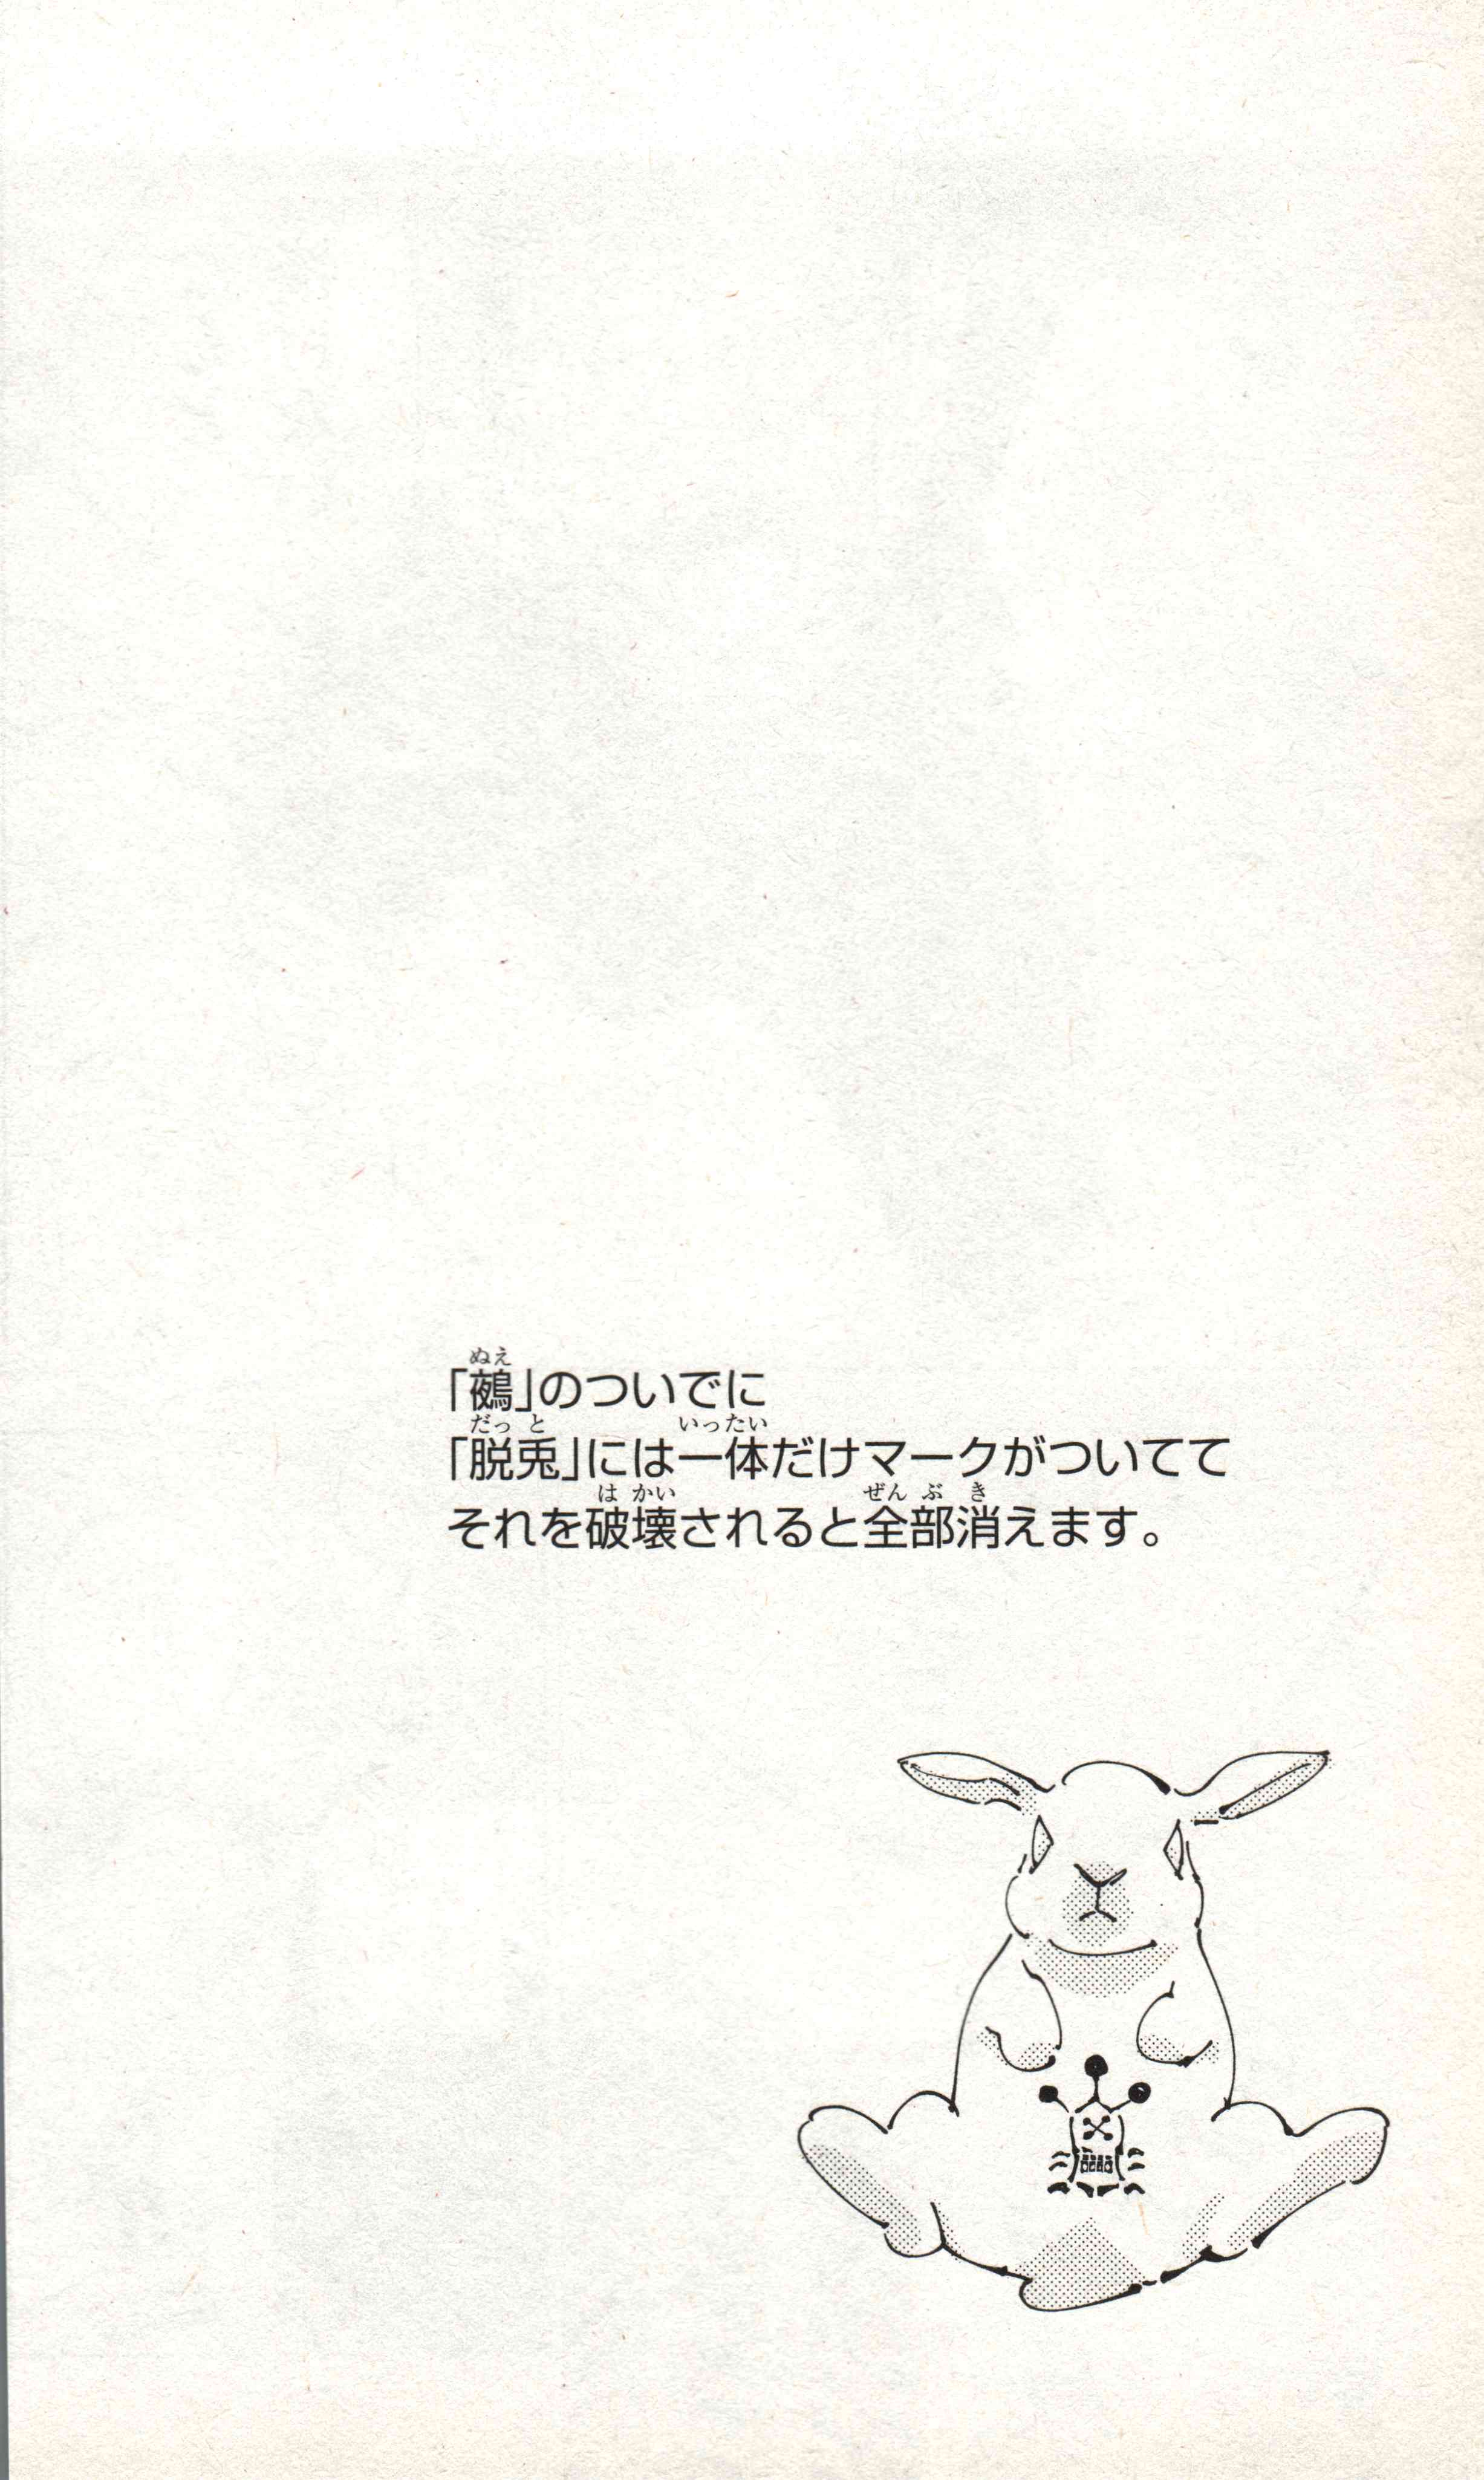 「鵺」のついでに
「脱兎」には一体だけマークがついてて
それを破壊されると全部消えます。